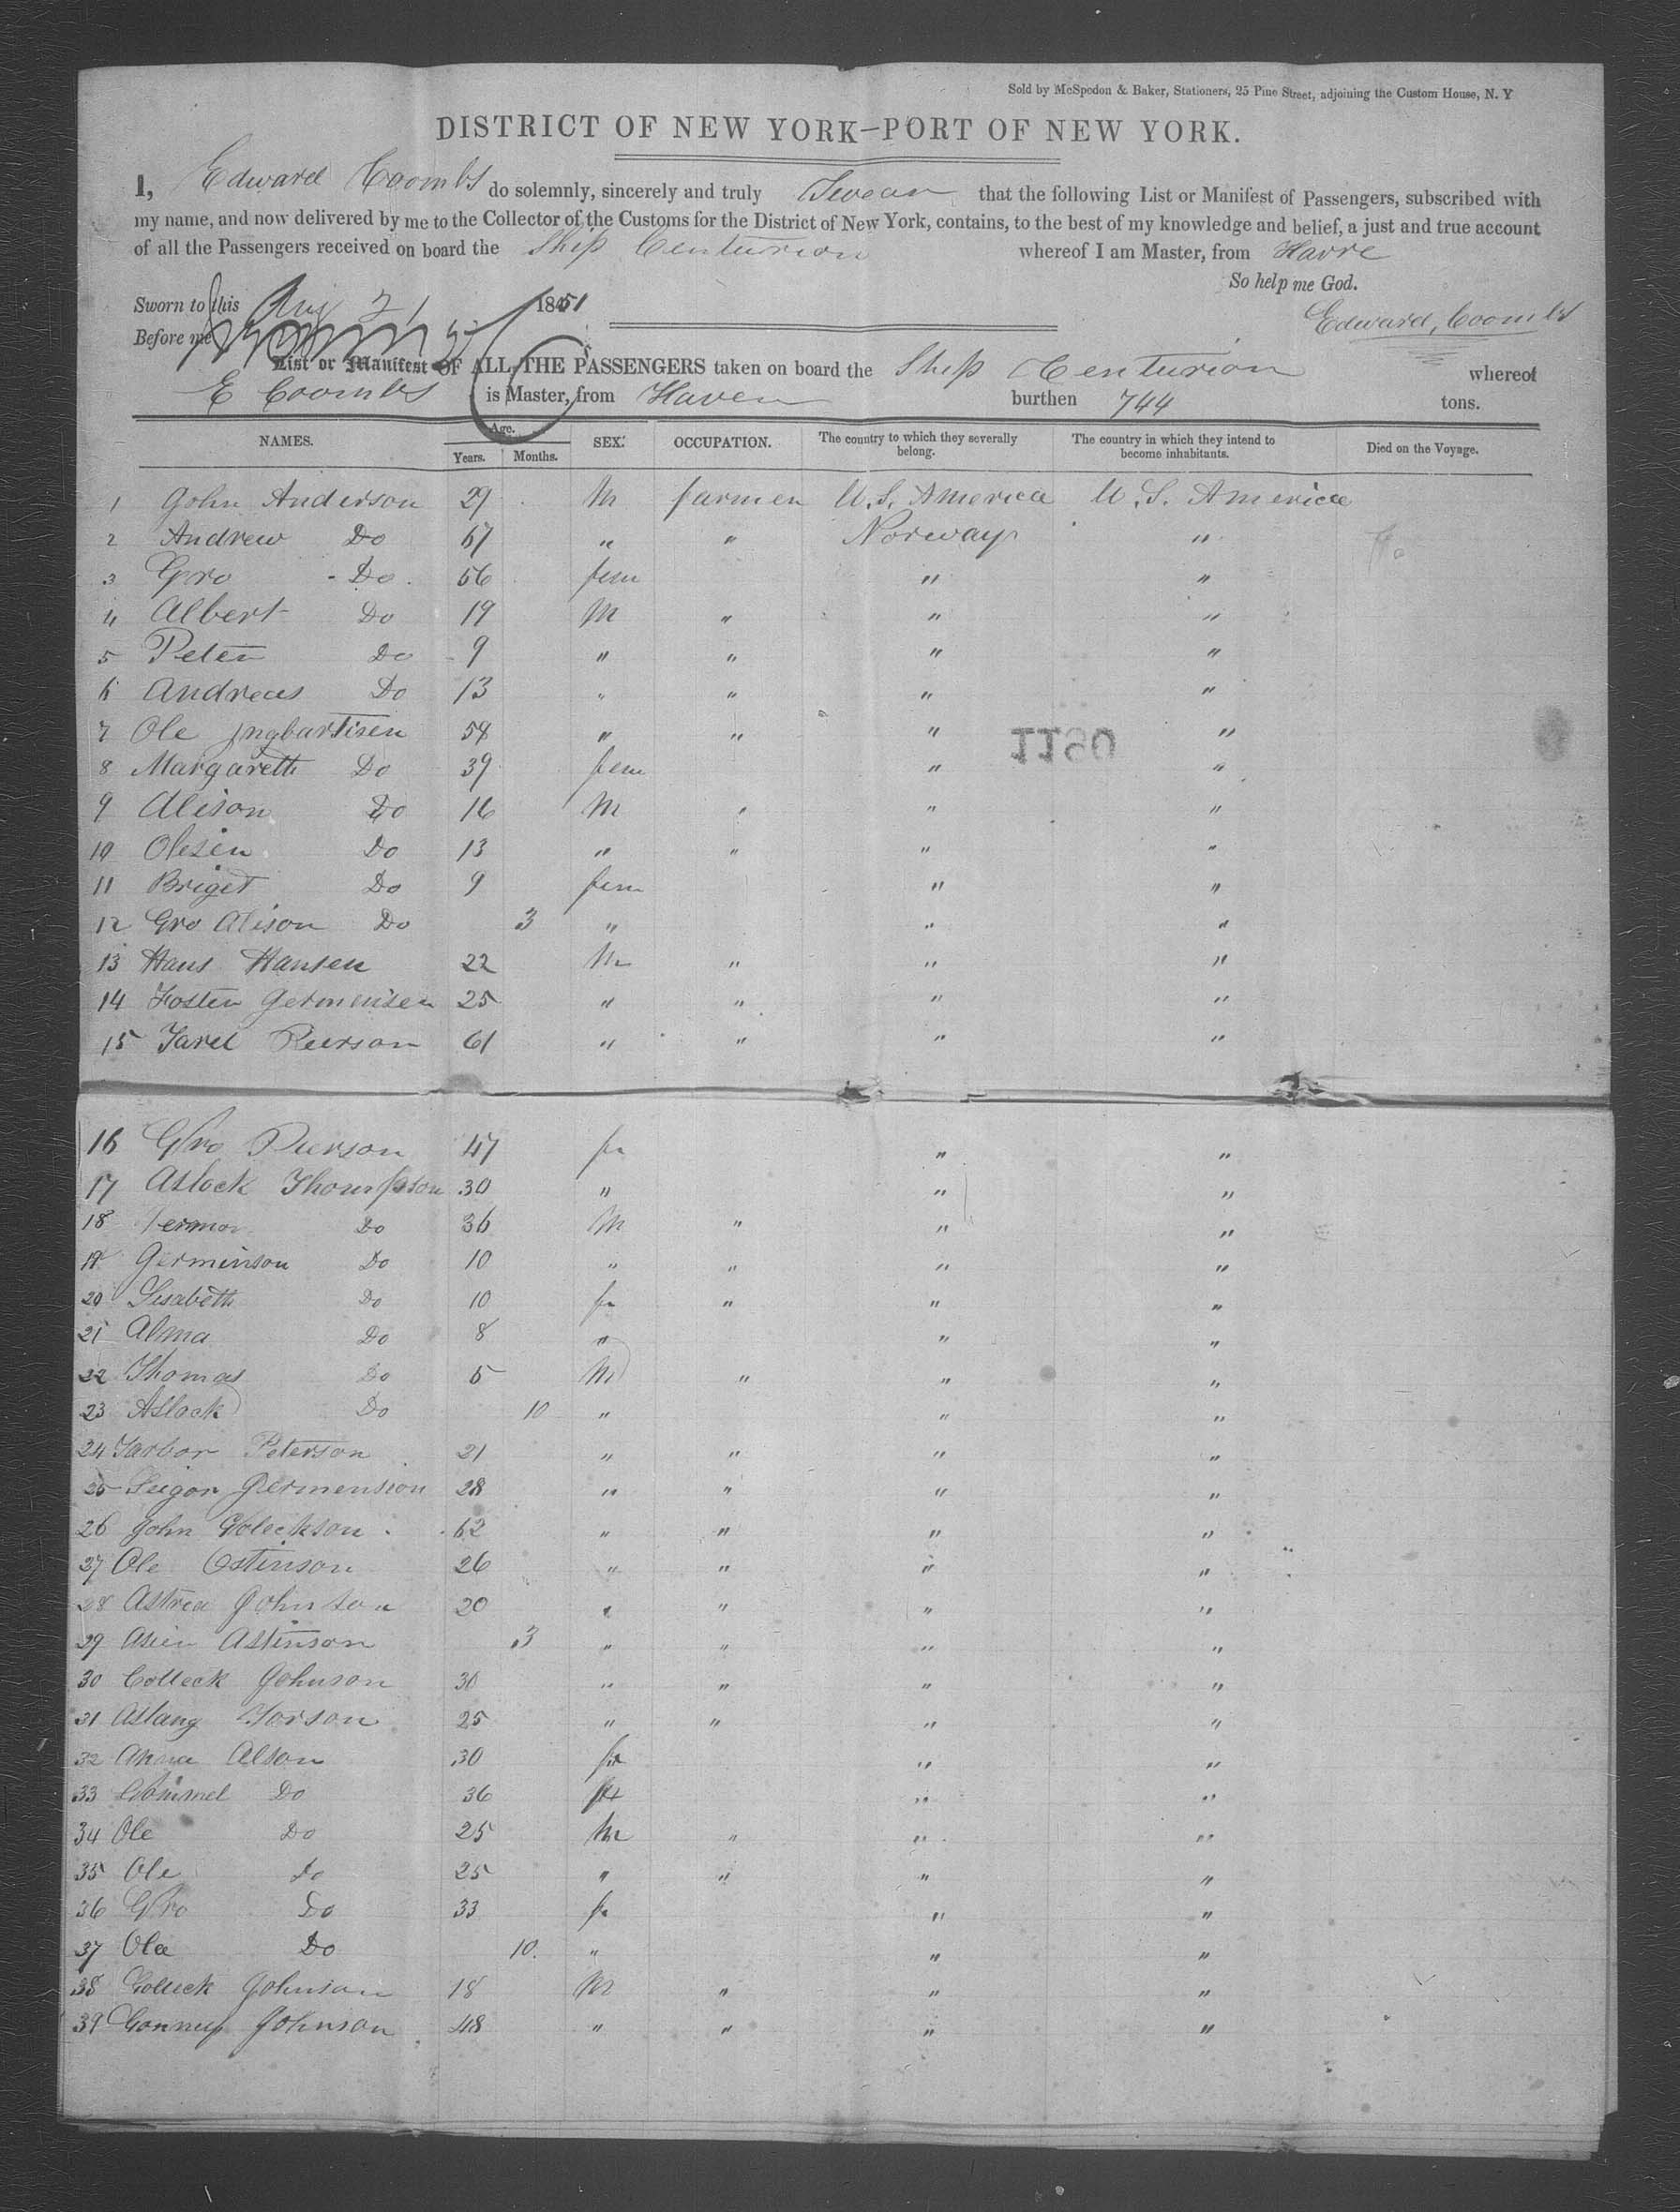 Sold by McSpedon & Baker, Stationers, 25 Pine Street, adjoining the Custom House, N. Y
DISTRICT OF NEW YORK—PORT OF NEW YORK.
I, Edward Coombs do solemnly, sincerely and truly Swear that the following List or Manifest of Passengers, subscribed with
my name, and now delivered by me to the Collector of the Customs for the District of New York, contains, to the best of my knowledge and belief, a just and true account
of all the Passengers received on board the Ship Centurion whereof I am Master, from Havre
So help me God.
Sworn to this Aug 21 1851
Edward Coombs
Before me
List or Manifest OF ALL THE PASSENGERS taken on board the Ship Centurion whereof
E Coombs is Master, from Haven burthen 744 tons.
NAMES. Age. Years. Months. SEX. OCCUPATION. The country to which they severally belong. The country in which they intend to become inhabitants. Died on the Voyage.
1 John Anderson 29 M farmer U.S. America U.S. America
2 Andrew Do 67 " " Norway "
3 Gro Do 56 fem " "
4 Albert Do 19 M " " "
5 Peter Do 9 " " " "
6 Andreas Do 13 " " " "
7 Ole Ingbartisen 58 " " " "
8 Margareth Do 39 fem " "
1190
9 Alison Do 16 M " " "
10 Olesin Do 13 " " " "
11 Briget Do 9 fem " "
12 Gro Alison Do 3 " " "
13 Hans Hansen 22 M " " "
14 Tosten Germensen 25 " " " "
15 Tarel Peerson 61 " " " "
16 Gro Pierson 47 fe " "
17 Aslock Thompson 30 " " "
18 Do 36 M " " "
19 Germinson Do 10 " " " "
20 Lisabeth Do 10 fe " " "
21 Alma Do 8 " " "
22 Thomas Do 5 M " " "
23 Aslock Do 10 " " "
24 Tarbor Peterson 21 " " " "
25 Seigor Germension 28 " " " "
26 John Goleckson 62 " " " "
27 Ole Ostinson 26 " " " "
28 Astrea Johnson 20 " " " "
29 Asien Astinson 3 " " " "
30 Colleck Johnson 30 " " " "
31 Aslang Torson 25 " " " "
32 Anna Alson 30 fe " "
33 Do 36 fe " "
34 Ole Do 25 M " " "
35 Ole Do 25 " " " "
36 Gro Do 33 fe " "
37 Ole Do 10 " " "
38 Colleck Johnson 18 M " " "
39 Johnson 48 " " " "